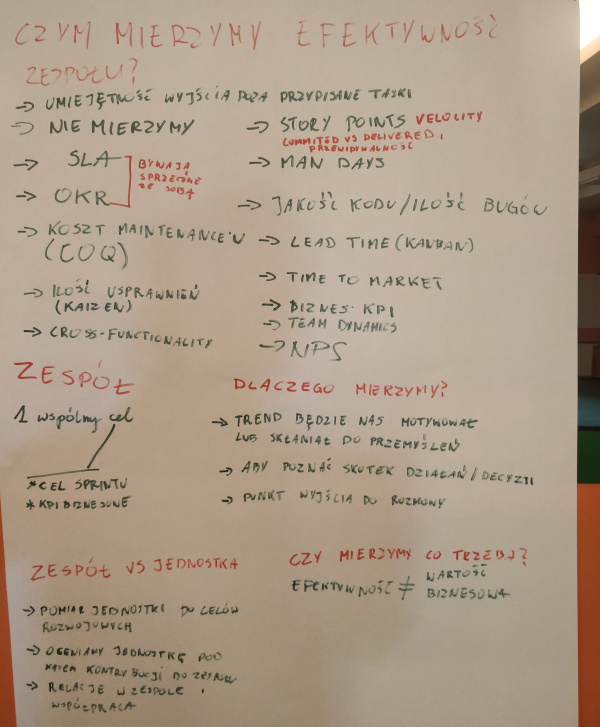 CZYM MIERZYMY EFEKTYWNOŚĆ
ZESPOŁU?
→ UMIEJĘTNOŚĆ WYJŚCIA POZA PRZYPISANE TASKI
→ NIE MIERZYMY
→ SLA
→ OKR
BYWAJĄ
SPRZECZNE
ZE SOBĄ
→ KOSZT MAINTENANCE'U
(COQ)
→ ILOŚĆ USPRAWNIEŃ
(KAIZEN)
→ CROSS-FUNCTIONALITY
→ STORY POINTS VELOCITY
COMMITED VS DELIVERED,
PRZEWIDYWALNOŚĆ
→ MAN DAYS
→ JAKOŚĆ KODU/ILOŚĆ BUGÓW
→ LEAD TIME (KANBAN)
→ TIME TO MARKET
→ BIZNES KPI
→ TEAM DYNAMICS
→ NPS
ZESPÓŁ
1 wspólny cel
* CEL SPRINTU
* KPI BIZNESOWE
DLACZEGO MIERZYMY?
→ TREND BĘDZIE NAS MOTYWOWAŁ
LUB SKŁANIAŁ DO PRZEMYŚLEŃ
→ ABY POZNAĆ SKUTEK DZIAŁAŃ/DECYZJI
→ PUNKT WYJŚCIA DO ROZMOWY
ZESPÓŁ VS JEDNOSTKA
→ POMIAR JEDNOSTKI DO CELÓW
ROZWOJOWYCH
→ OCENIAMY JEDNOSTKĘ POD
KĄTEM KONTRYBUCJI DO ZESPOŁU
→ RELACJE W ZESPOLE,
WSPÓŁPRACA
CZY MIERZYMY CO TRZEBA?
EFEKTYWNOŚĆ ≠ WARTOŚĆ
BIZNESOWA